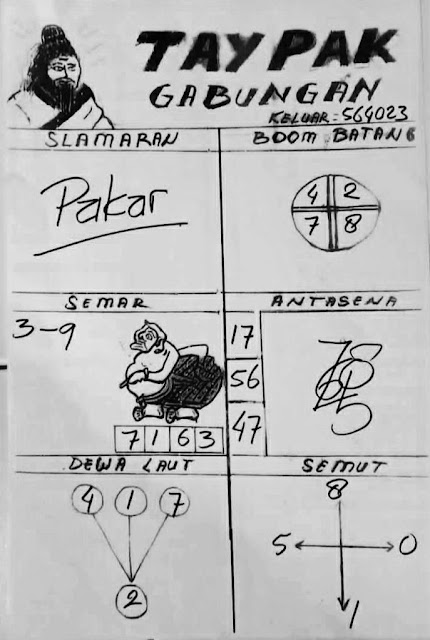 TAYPAK
GABUNGAN
KELUAR : 564023
SLAMARAN
BOOM BATANG
Pakar
4 2
7 8
SEMAR
ANTASENA
3-9
17
56
47
7 1 6 3
DEWA LAUT
SEMUT
4 1 7
2
8
5 0
1